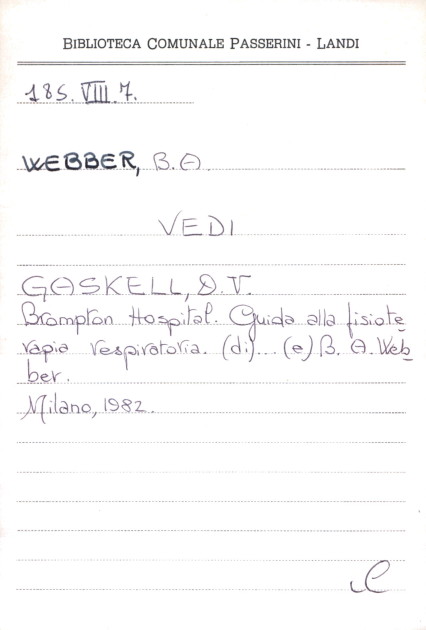 BIBLIOTECA COMUNALE PASSERINI - LANDI
185. VIII. 7.
WEBBER, B.A.
VEDI
GASKELL, D.V.
Brompton Hospital. Guida alla fisiote
rapia respiratoria. (di)... (e) B. A. Web
ber.
Milano, 1982.